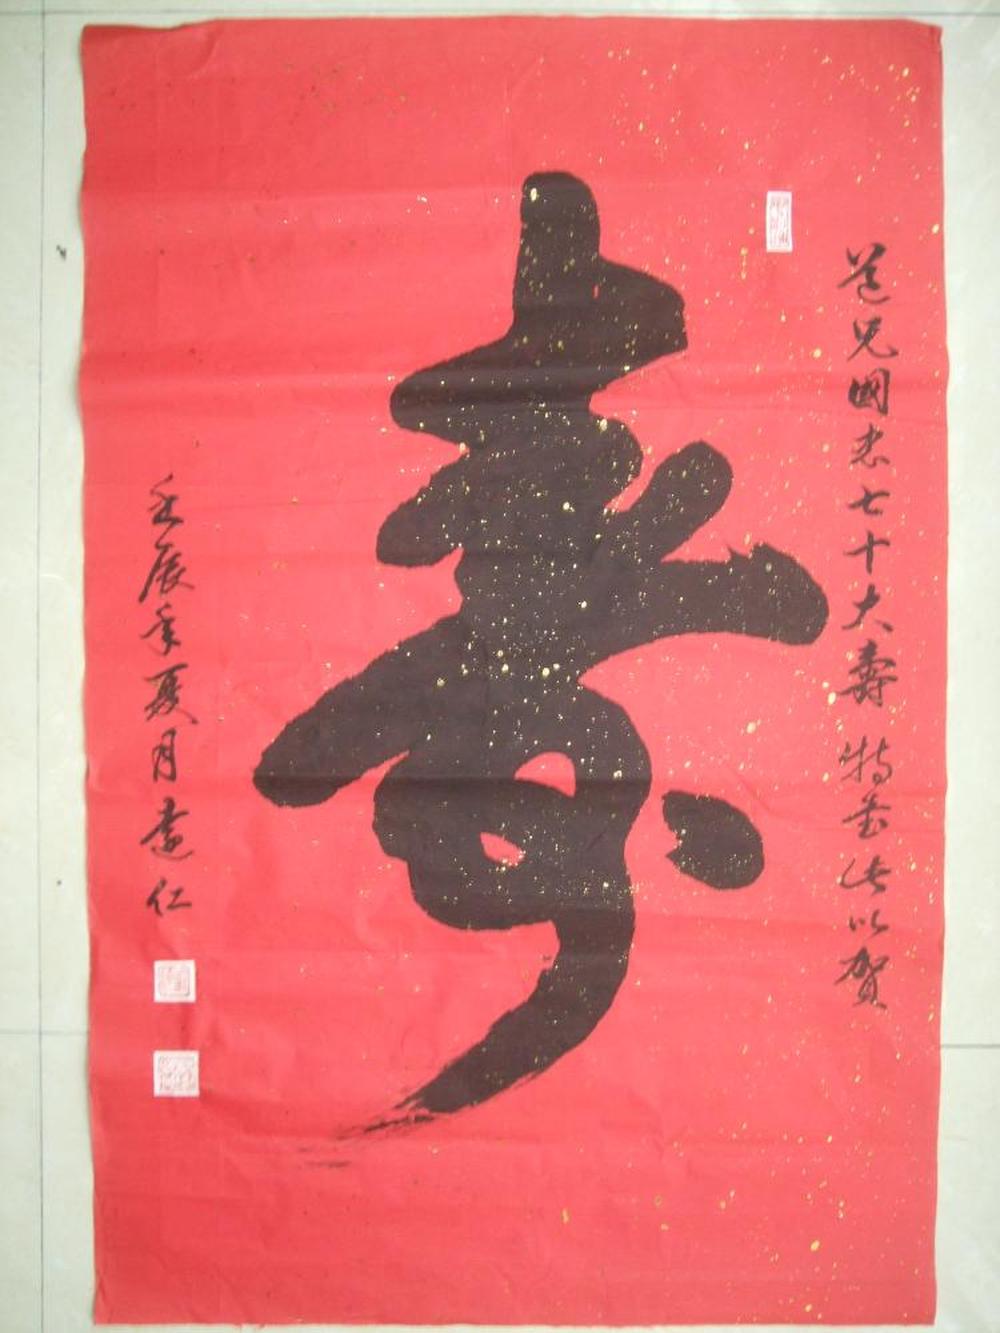 道兄國忠七十大壽 特書此以賀
壽
壬辰年夏月遠仁